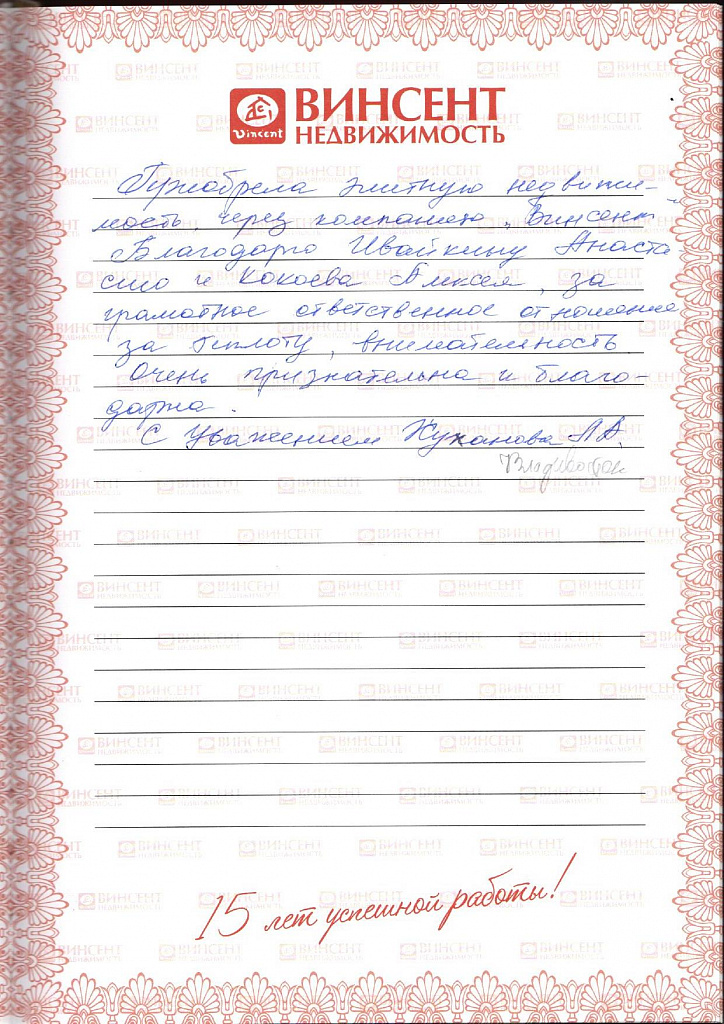 Vincent
ВИНСЕНТ
НЕДВИЖИМОСТЬ
Приобрела элитную недвижи-
мость, через компанию, Винсент
Благодарю Ивайкину Анаста
сию и Кокоева Алексея, за
грамотное ответственное отношение
за теплоту, внимательность
Очень признательна и благо-
дарна.
С Уважением Жуханова Л.А.
Владивосток
15 лет успешной работы!